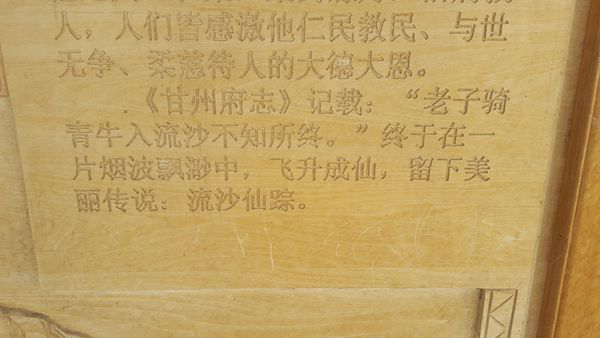 人，人们皆感激他仁民教民、与世
无争、柔慈待人的大德大恩。
《甘州府志》记载：“老子骑
青牛入流沙不知所终。”终于在一
片烟波飘渺中，飞升成仙，留下美
丽传说：流沙仙踪。